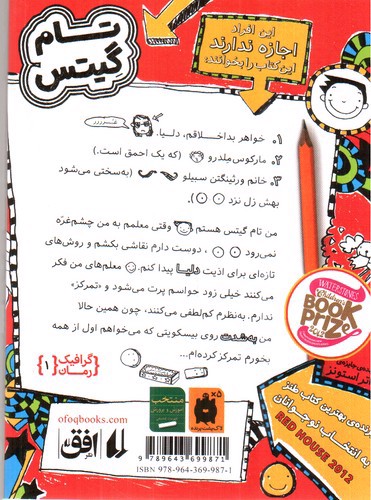 تام
گیتس
این افراد
اجازه ندارند
این کتاب را بخوانند:
۱. خواهر بداخلاقم، دلیا.
۲. مارکوس ملدرو (که یک احمق است.)
۳. خانم ورثینگتن سبیلو (به‌سختی می‌شود
بهش زل نزد)
من تام گیتس هستم وقتی معلمم به من چشم‌غرّه
نمی‌رود، دوست دارم نقاشی بکشم و روش‌های
تازه‌ای برای اذیت دلیا پیدا کنم. معلم‌های من فکر
می‌کنند خیلی زود حواسم پرت می‌شود و «تمرکز»
ندارم. به‌نظرم کم‌لطفی می‌کنند، چون همین حالا
من به‌شدت روی بیسکویتی که می‌خواهم اول از همه
بخورم تمرکز کرده‌ام...
WATERSTONES
Children's
BOOK
PRIZE
2012
اتر استونز
برنده‌ی بهترین کتاب طنز
به انتخاب نوجوانان
RED HOUSE 2012
گرافیک
رمان
{۱}
ofoqbooks.com
افق
منتخب
آموزش و پرورش
x۵
لاک‌پشت پرنده
9 789643 699871
ISBN 978-964-369-987-1